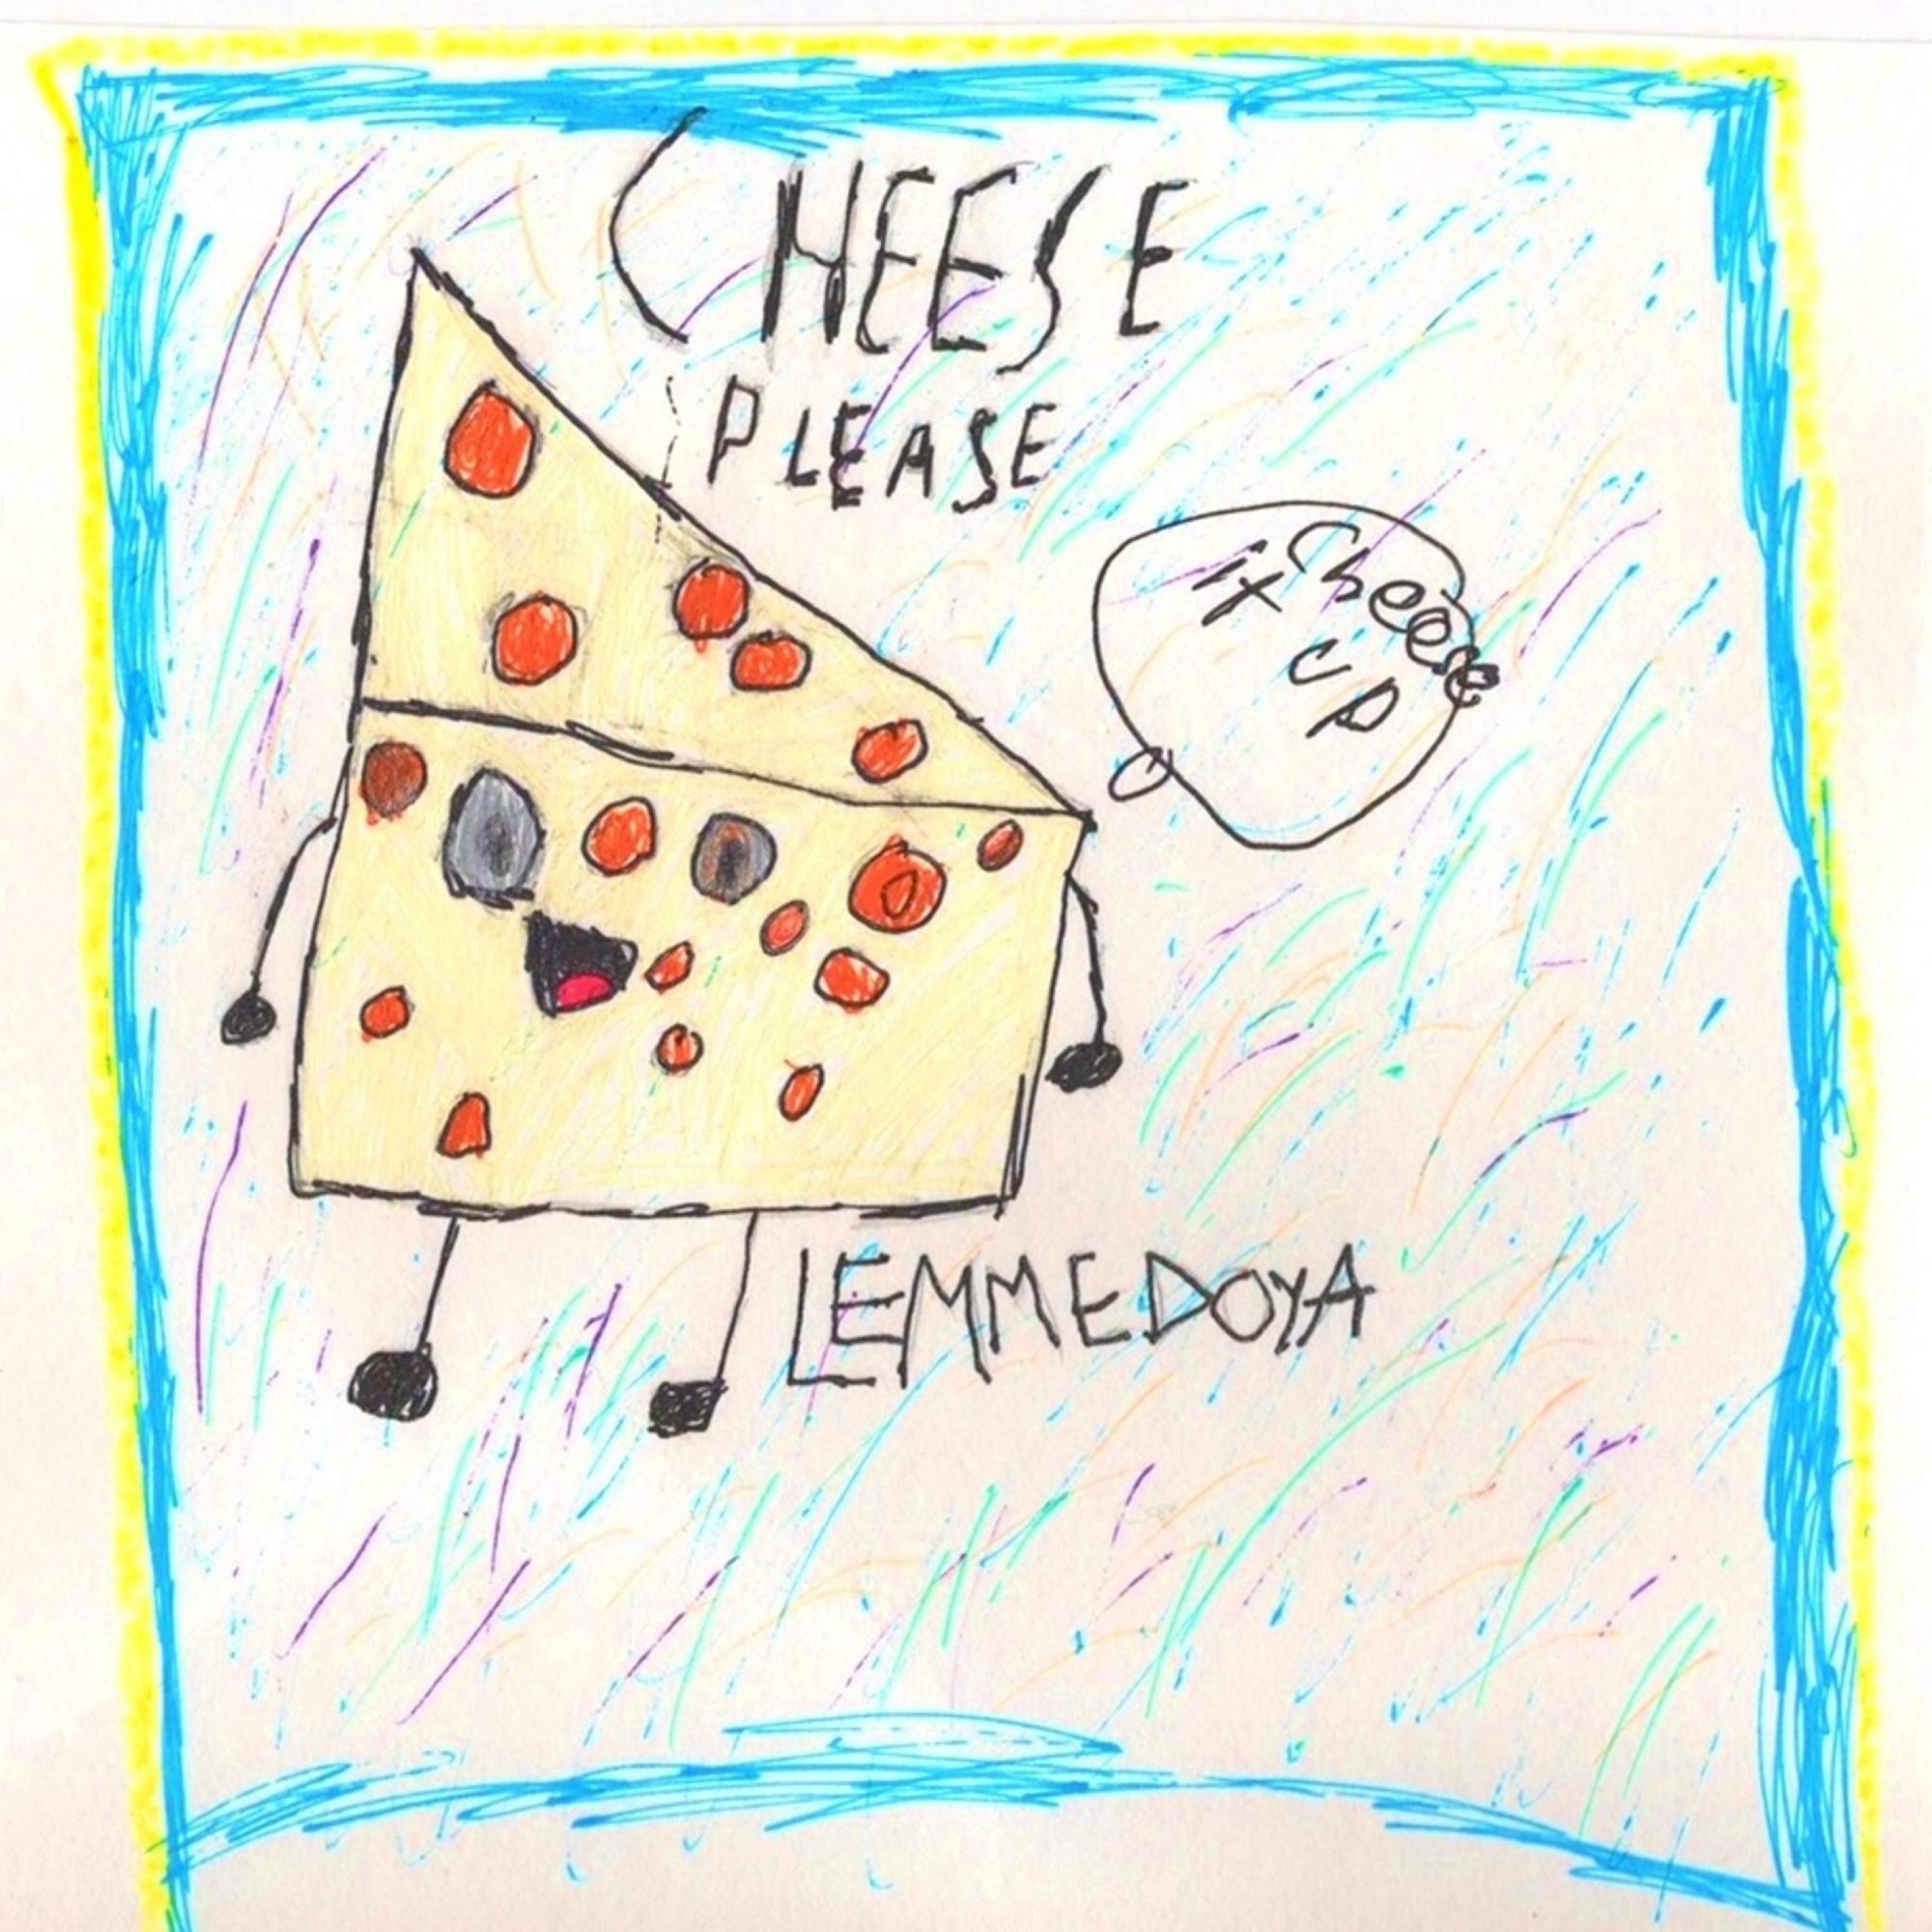 CHEESE
PLEASE
Cheese
UP
LEMMEDOYA